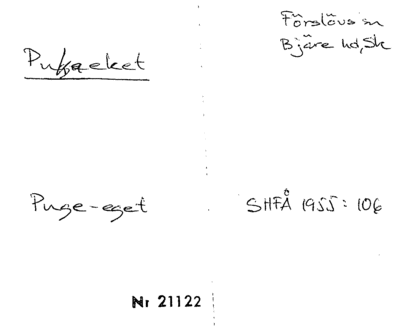 Förslövs sn
Bjäre hd, Sk
Pugeeket
Puge-eget
SHFÅ 1955: 106
Nr 21122